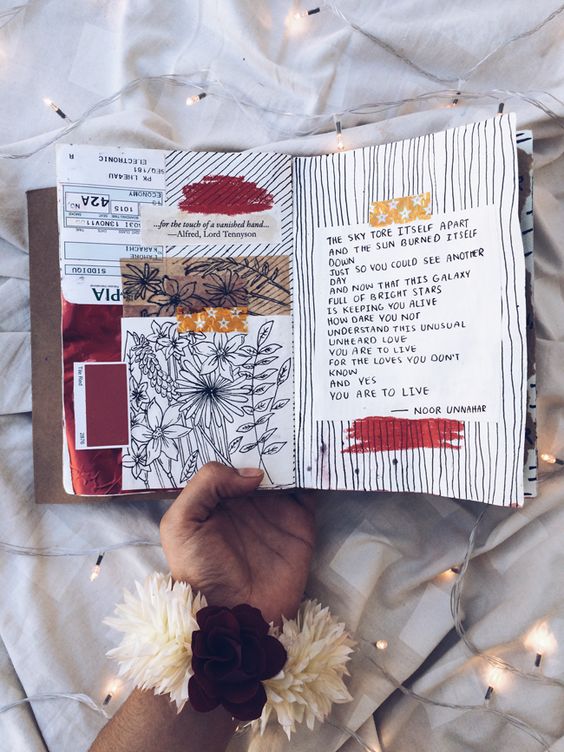 ELECTRONIC
PK LHE4AU
SEQ/181
R
ECONOMY
42A
1015
NO
1031 13NOV11
LAHORE
KARACHI
SIDDIQU
PIA
...for the touch of a vanished hand...
—Alfred, Lord Tennyson
Tile Red
2976
THE SKY TORE ITSELF APART
AND THE SUN BURNED ITSELF
DOWN
JUST SO YOU COULD SEE ANOTHER
DAY
AND NOW THAT THIS GALAXY
FULL OF BRIGHT STARS
IS KEEPING YOU ALIVE
HOW DARE YOU NOT
UNDERSTAND THIS UNUSUAL
UNHEARD LOVE
YOU ARE TO LIVE
FOR THE LOVES YOU DON'T
KNOW
AND YES
YOU ARE TO LIVE
— NOOR UNNAHAR